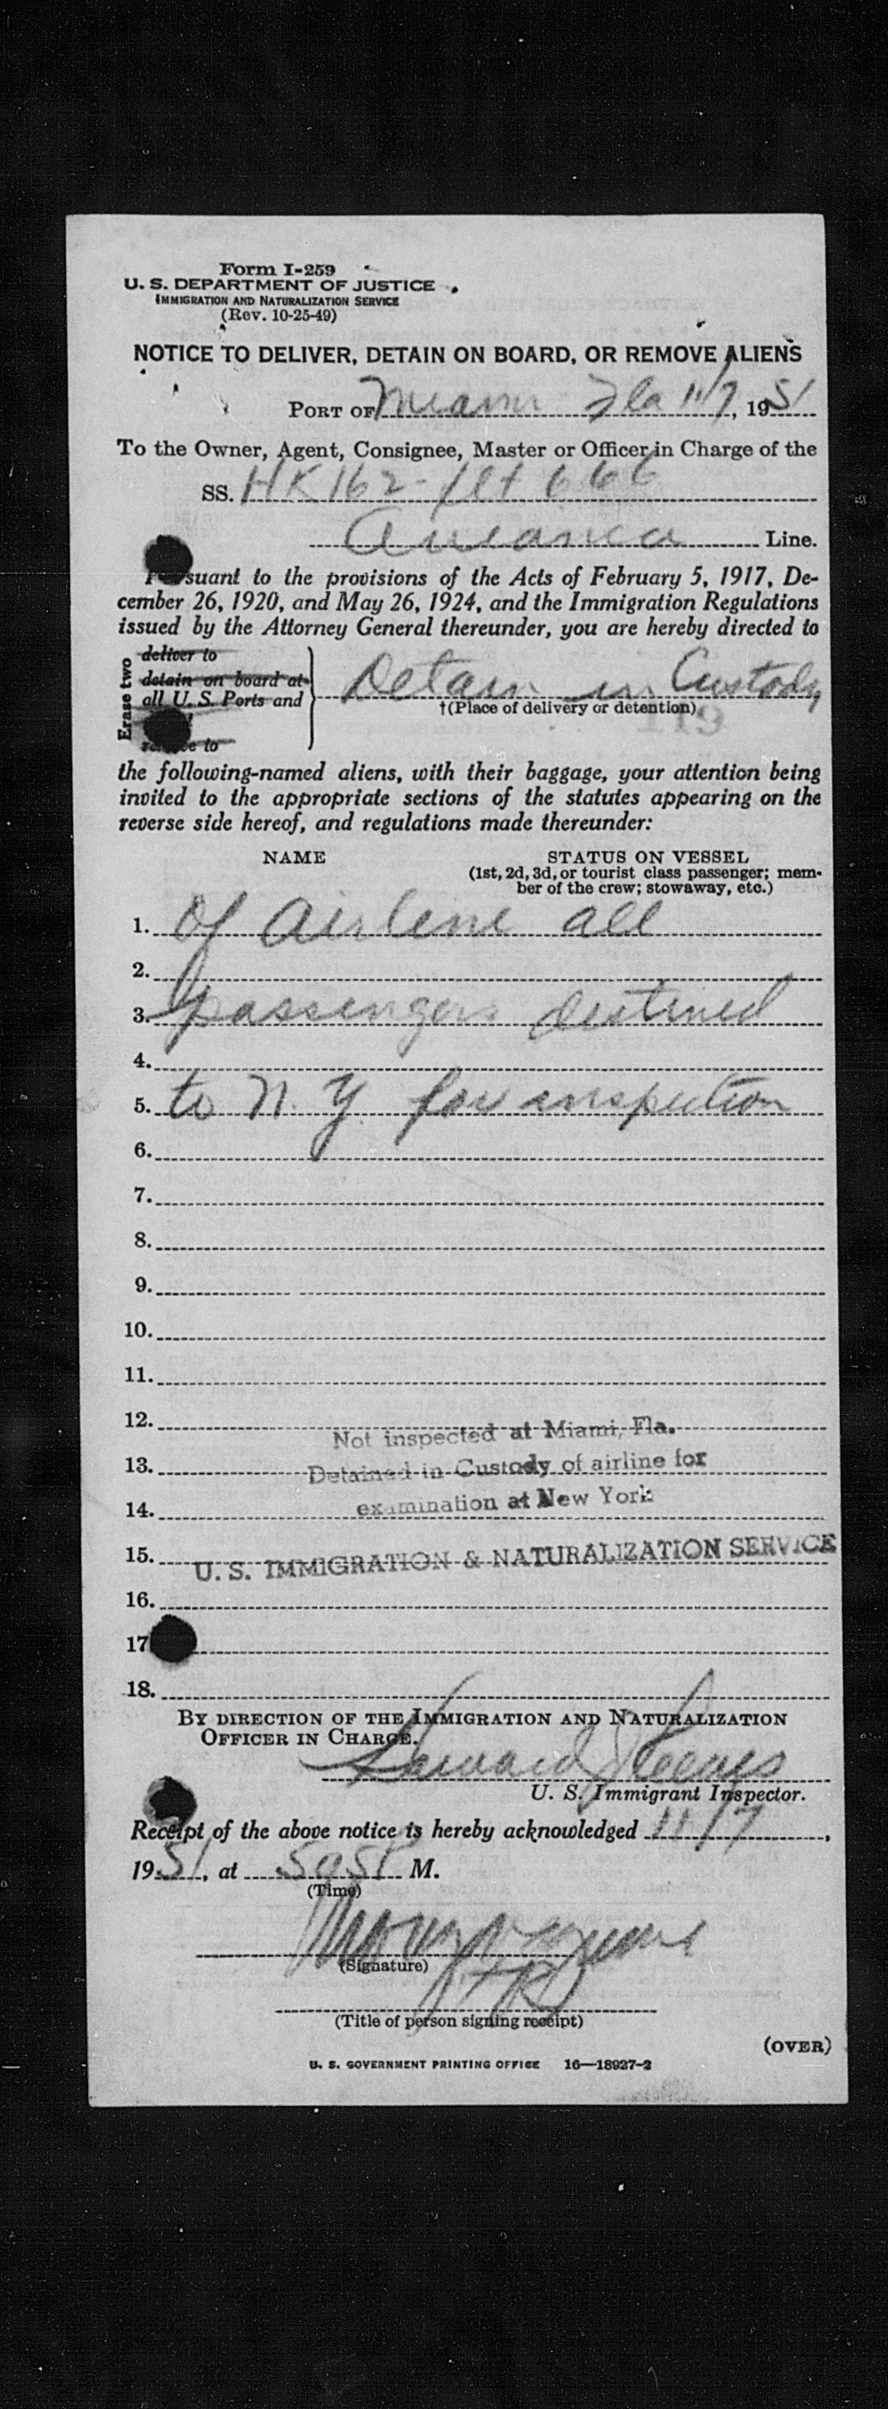 Form I-259
U. S. DEPARTMENT OF JUSTICE
IMMIGRATION AND NATURALIZATION SERVICE
(Rev. 10-25-49)
NOTICE TO DELIVER, DETAIN ON BOARD, OR REMOVE ALIENS
PORT OF Miami Fla 11/7, 1951
To the Owner, Agent, Consignee, Master or Officer in Charge of the
SS. HK162- flt 666
Avianca Line.
Pursuant to the provisions of the Acts of February 5, 1917, De-
cember 26, 1920, and May 26, 1924, and the Immigration Regulations
issued by the Attorney General thereunder, you are hereby directed to
Erase two
deliver to
detain on board at
all U. S. Ports and
to
Detain in Custody
†(Place of delivery or detention)
119
the following-named aliens, with their baggage, your attention being
invited to the appropriate sections of the statutes appearing on the
reverse side hereof, and regulations made thereunder:
NAME STATUS ON VESSEL
(1st, 2d, 3d, or tourist class passenger; mem-
ber of the crew; stowaway, etc.)
1. Of Airline all
2.
3. passengers destined
4.
5. to N. Y. for inspection
6.
7.
8.
9.
10.
11.
12.
Not inspected at Miami, Fla.
13. Detained in Custody of airline for
14. examination at New York
15. U. S. IMMIGRATION & NATURALIZATION SERVICE
16.
17
18.
BY DIRECTION OF THE IMMIGRATION AND NATURALIZATION
OFFICER IN CHARGE.
U. S. Immigrant Inspector.
Receipt of the above notice is hereby acknowledged 11/7,
1951, at M.
(Time)
(Signature)
(Title of person signing receipt)
(OVER)
U. S. GOVERNMENT PRINTING OFFICE 16—18927-2